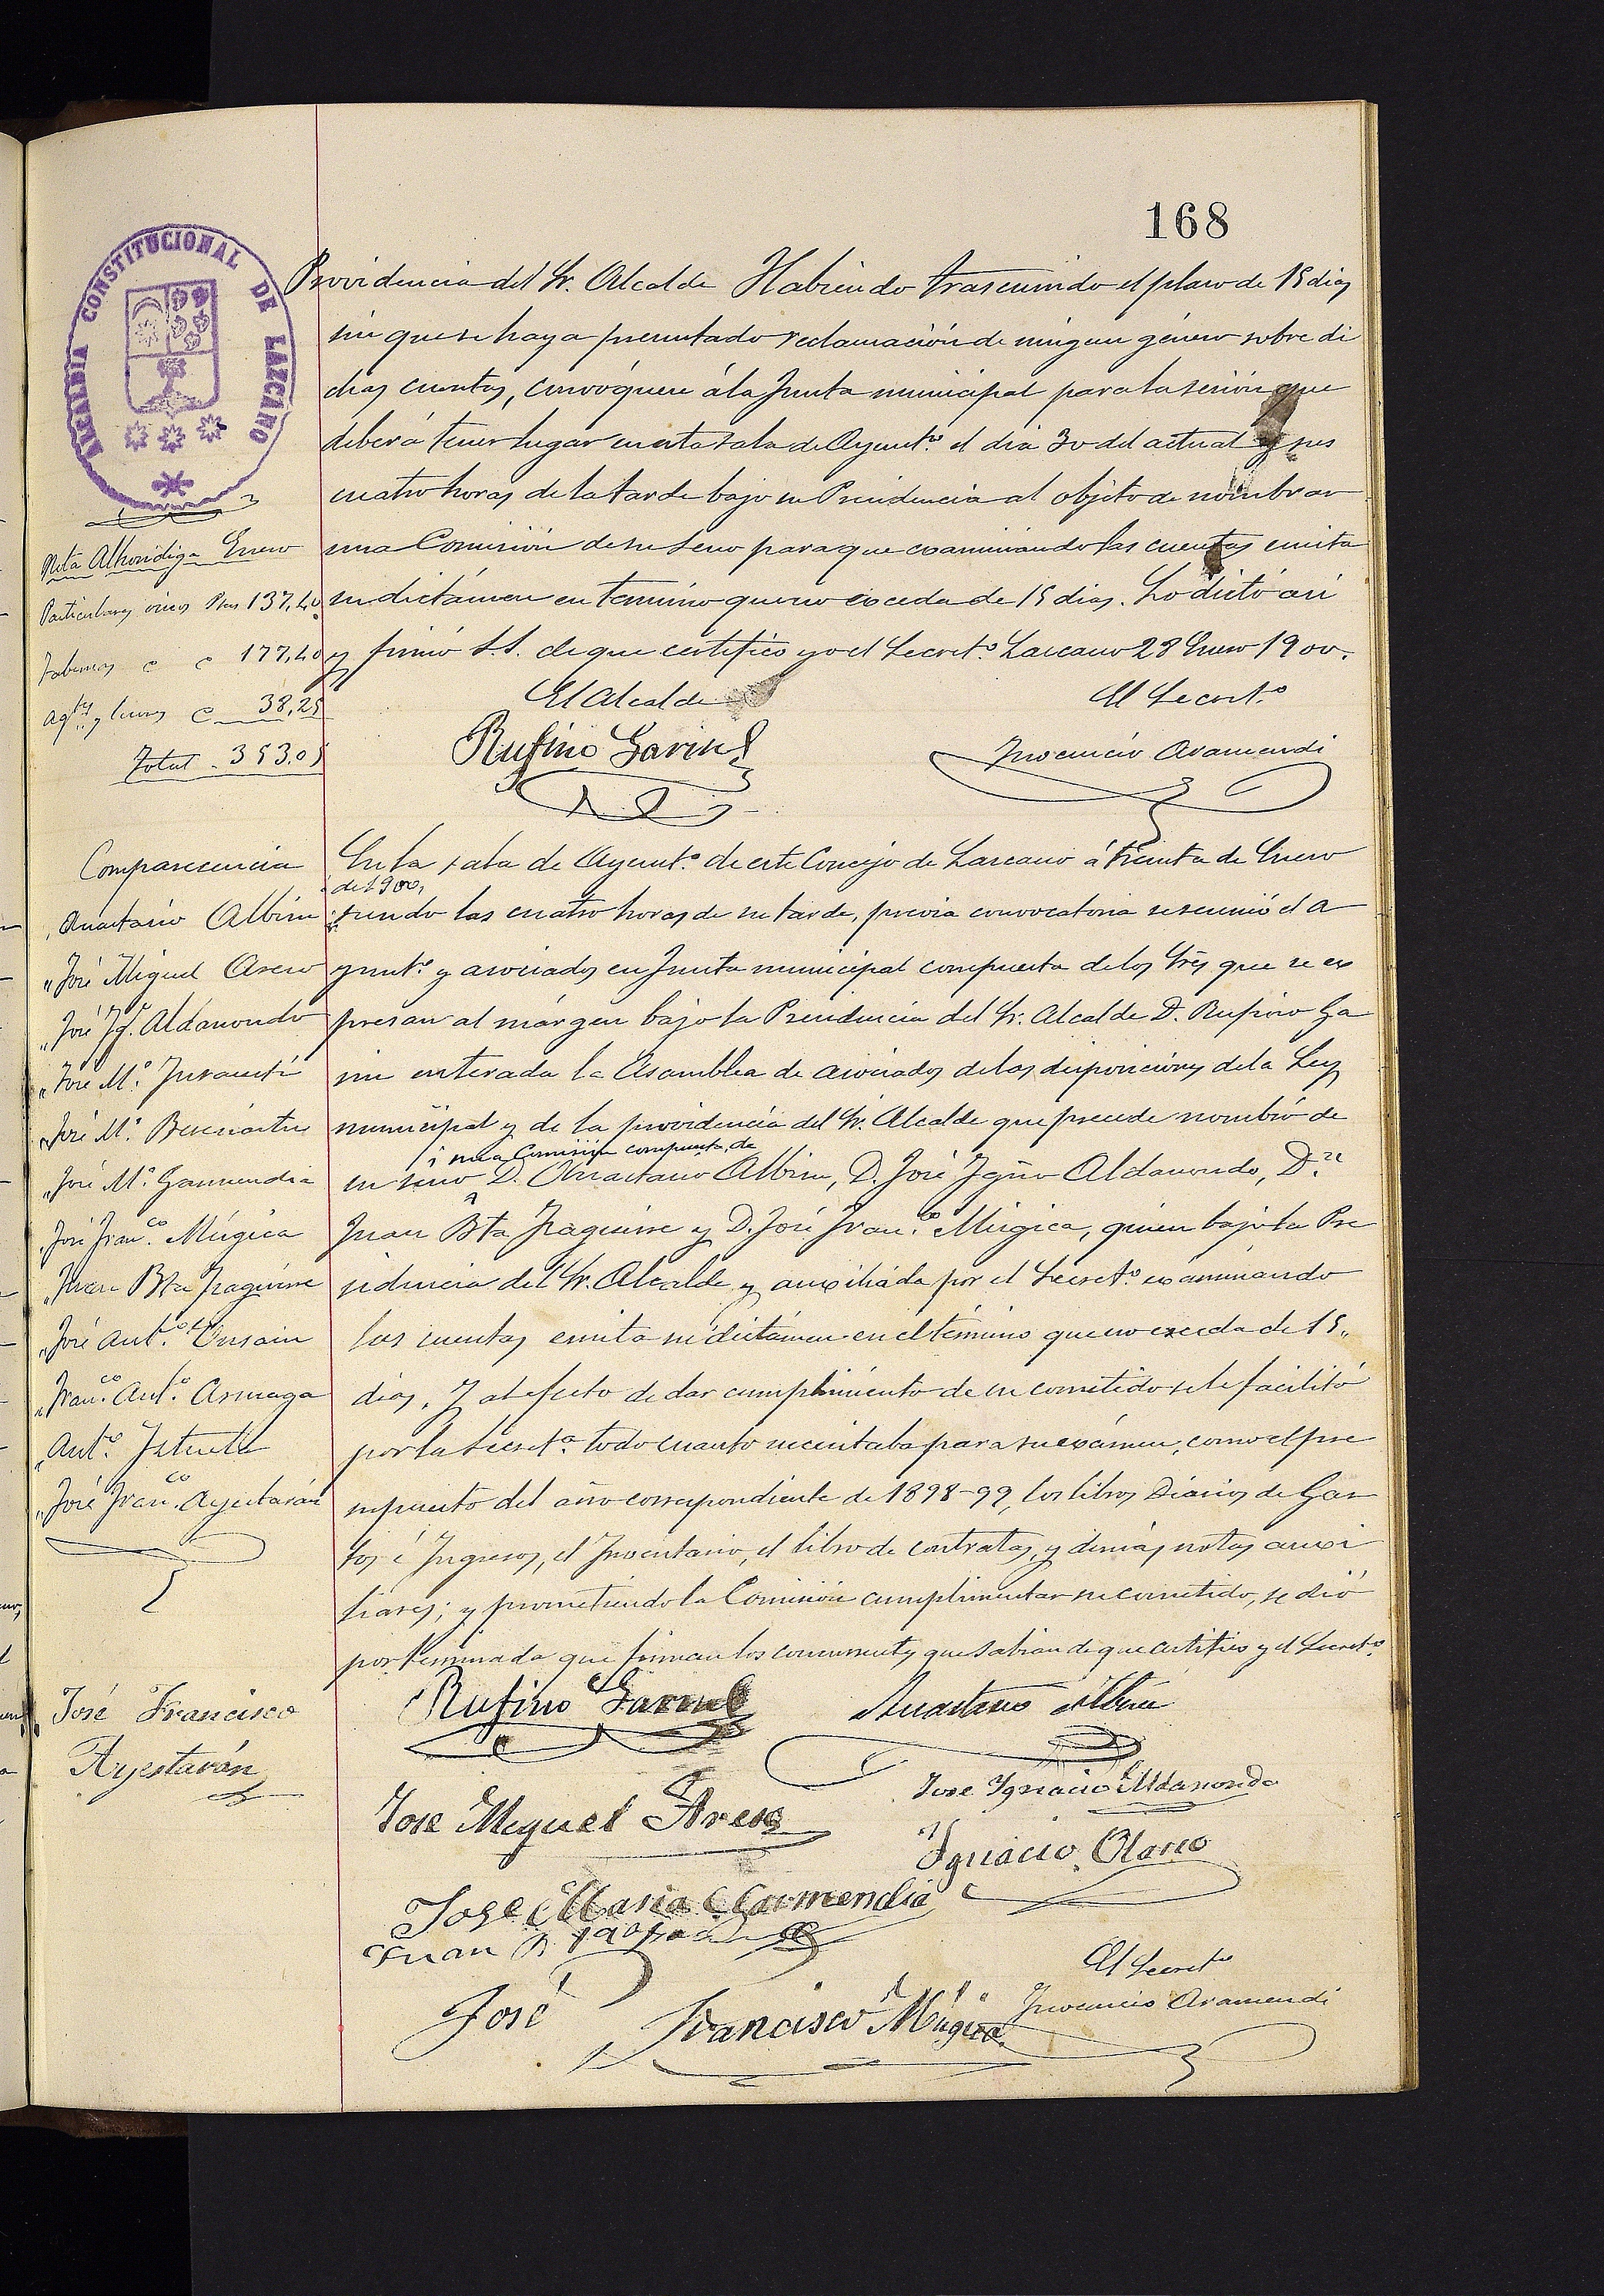 168
ALCALDIA CONSTITUCIONAL DE LAZCANO
Providencia del Sr. Alcalde Habiendo trascurrido el plazo de 15 dias
sin que se haya presentado reclamación de ningun género sobre di
chas cuentas, convóquese á la Junta municipal para la sesión que
deberá tener lugar en esta sala de Ayunt.º el dia 30 del actual y sus
cuatro horas de la tarde bajo su Presidencia al objeto de nombrar
una Comisión de su seno para que examinando las cuentas emita
su dictámen en termino que no exceda de 15 dias. Lo dictó asi
y firmó S.S. de que certifico yo el Secret.º Lazcano 28 Enero 1900.
El Alcalde
El Secret.º
Rufino Garin
Inocencio Aramendi
Nota Alhondiga Enero
Particulares vinos Ptas 137,40
Tabernas " " 177,40
Agtes y licores " 38,25
Total - 353,05
Comparecencia
Anastasio Albisu
" José Miguel Areso
" José Ig.º Aldanondo
" José M.ª Insausti
" José M.ª Garmendia
" José Fran.co Múgica
" Juan Bta Iraguirre
" José Ant.º
" Fran.co Ant.º
" Ant.º
" José Fran.co Ayestarán
En la sala de Ayunt.º de este Concejo de Lazcano á treinta de Enero
de 1900,
siendo las cuatro horas de su tarde, previa convocatoria se reunió el A
yunt.º y asociados en Junta municipal compuesta de los Sres que se ex
presan al márgen bajo la Presidencia del Sr. Alcalde D. Rufino Ga
rin enterada la Asamblea de asociados de las disposiciones de la Ley
municipal y de la providencia del Sr. Alcalde que precede nombró de
una Comisión compuesta de
su seno D. Anastasio Albisu, D. José Igno Aldanondo, D.n
Juan Bta Iraguirre y D. José Fran.co Múgica, quien bajo la Pre
sidencia del Sr. Alcalde y auxiliada por el Secret.º examinando
las cuentas emita su dictámen en el término que no exceda de 15
dias. Y al efecto de dar cumplimiento de su cometido se le facilitó
por la Secret.ª todo cuanto necesitaba para su exámen, como el pre
supuesto del año correspondiente de 1898-99, los libros Diarios de Gas
tos é Ingresos, el Inventario, el libro de contratas, y demás notas auxi
liares; y prometiendo la Comisión cumplimentar su cometido, se dió
por terminada que firman los concurrentes que sabian de que certifico yo el Secret.º
Rufino Garin
Anastasio Albisu
José Francisco
Ayestarán
Jose Ignacio Aldanondo
Jose Miguel Areso
Ignacio Olano
Jose Maria Garmendia
Juan B.
José Francisco Múgica
El Secret.º
Inocencio Aramendi